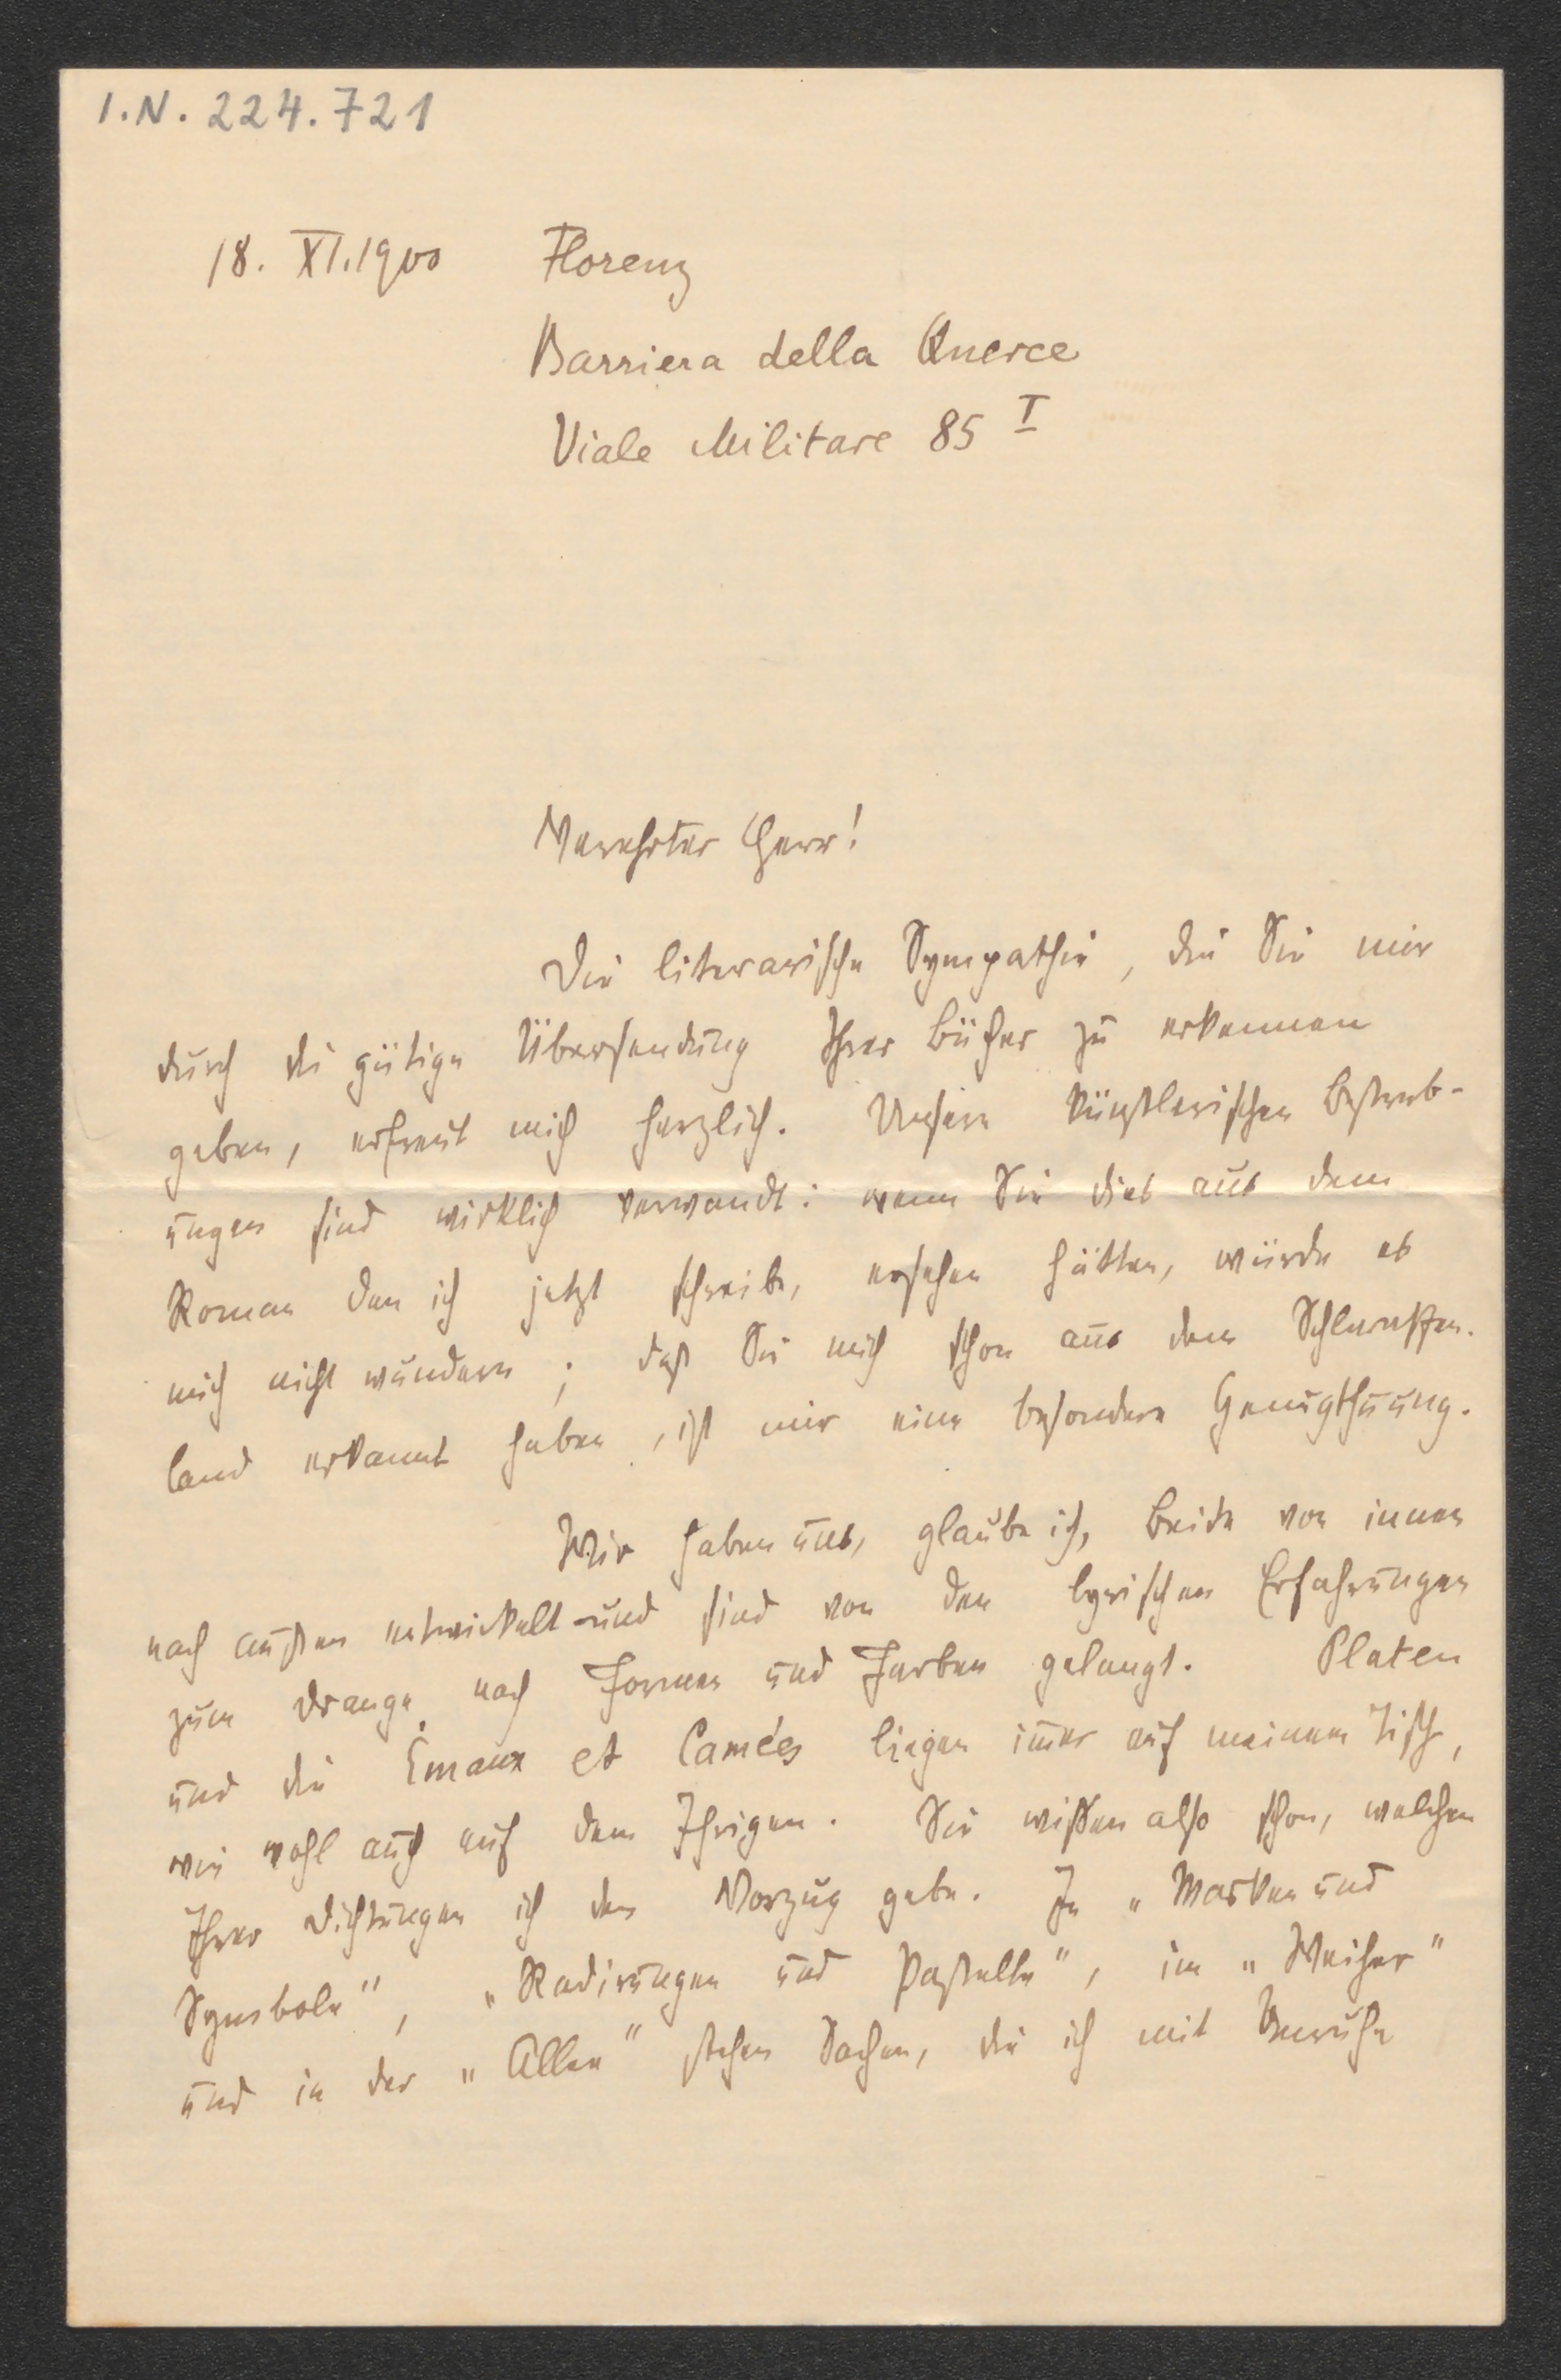 I.N. 224.721
18. XI. 1900 Florenz
Barriera della Querce
Viale Militare 85 I
Verehrter Herr!
Die literarische Sympathie, die Sie mir
durch die gütige Übersendung Ihrer Bücher zu erkennen
geben, erfreut mich herzlich. Unsere künstlerischen Bestreb-
ungen sind wirklich verwandt: wenn Sie dies aus dem
Roman den ich jetzt schreibe, ersehen hätten, würde es
mich nicht wundern; daß Sie mich schon aus dem Schlaraffen-
land erkannt haben, ist mir eine besondere Genugthuung.
Wir haben uns, glaube ich, beide von innen
nach außen entwickelt und sind von den lyrischen Erfahrungen
zum Drange nach Formen und Farben gelangt. Platen
und die Emaux et Camées liegen im̅er auf meinem Tisch,
wie wohl auch auf dem Ihrigen. Sie wissen also schon, welchen
Ihrer Dichtungen ich den Vorzug gebe. In „Masken und
Symbole", „Radirungen und Pastelle", im „Weiher"
und in der „Allee" stehen Sachen, die ich mit Unruhe